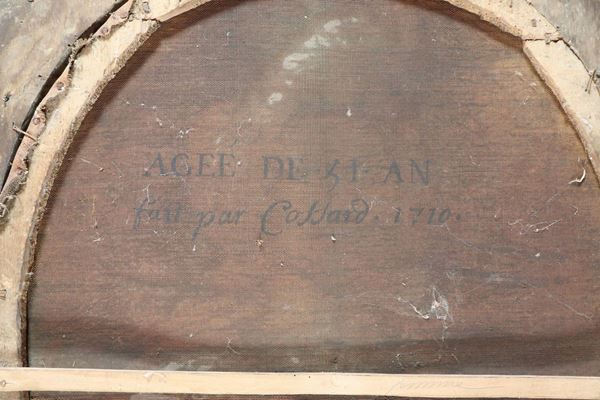 AGEE DE 51 AN
fait par Collard. 1710.